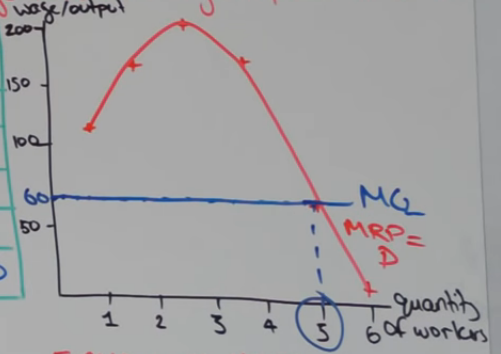 wage/output
200
150
100
60
50
MCL
MRP=
D
1 2 3 4 5 6
quantity
of workers